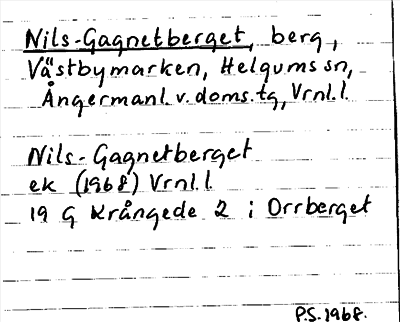 Nils-Gagnetberget, berg,
Västbymarken, Helgums sn,
Ångermanl. v. doms. tg, Vrnl. l.
Nils-Gagnetberget
ek (1968) Vrnl. l
19 G Krångede 2 i Orrberget
P.S. 1968.